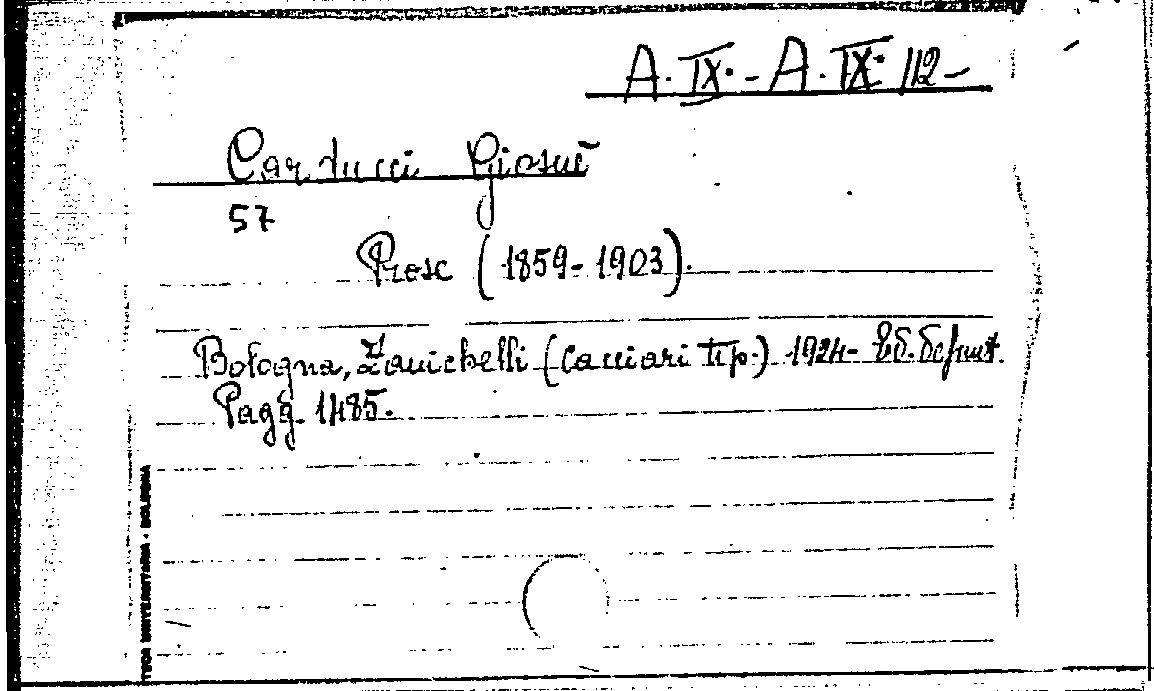 A. IX. - A. IX. 112 -
Carducci Giosuè
57
Prose (1859-1903).
Bologna, Zanichelli (Cacciari tip.) 1924- Ed. definit.
Pagg. 1485.
UNIVERSITARIA - BOLOGNA